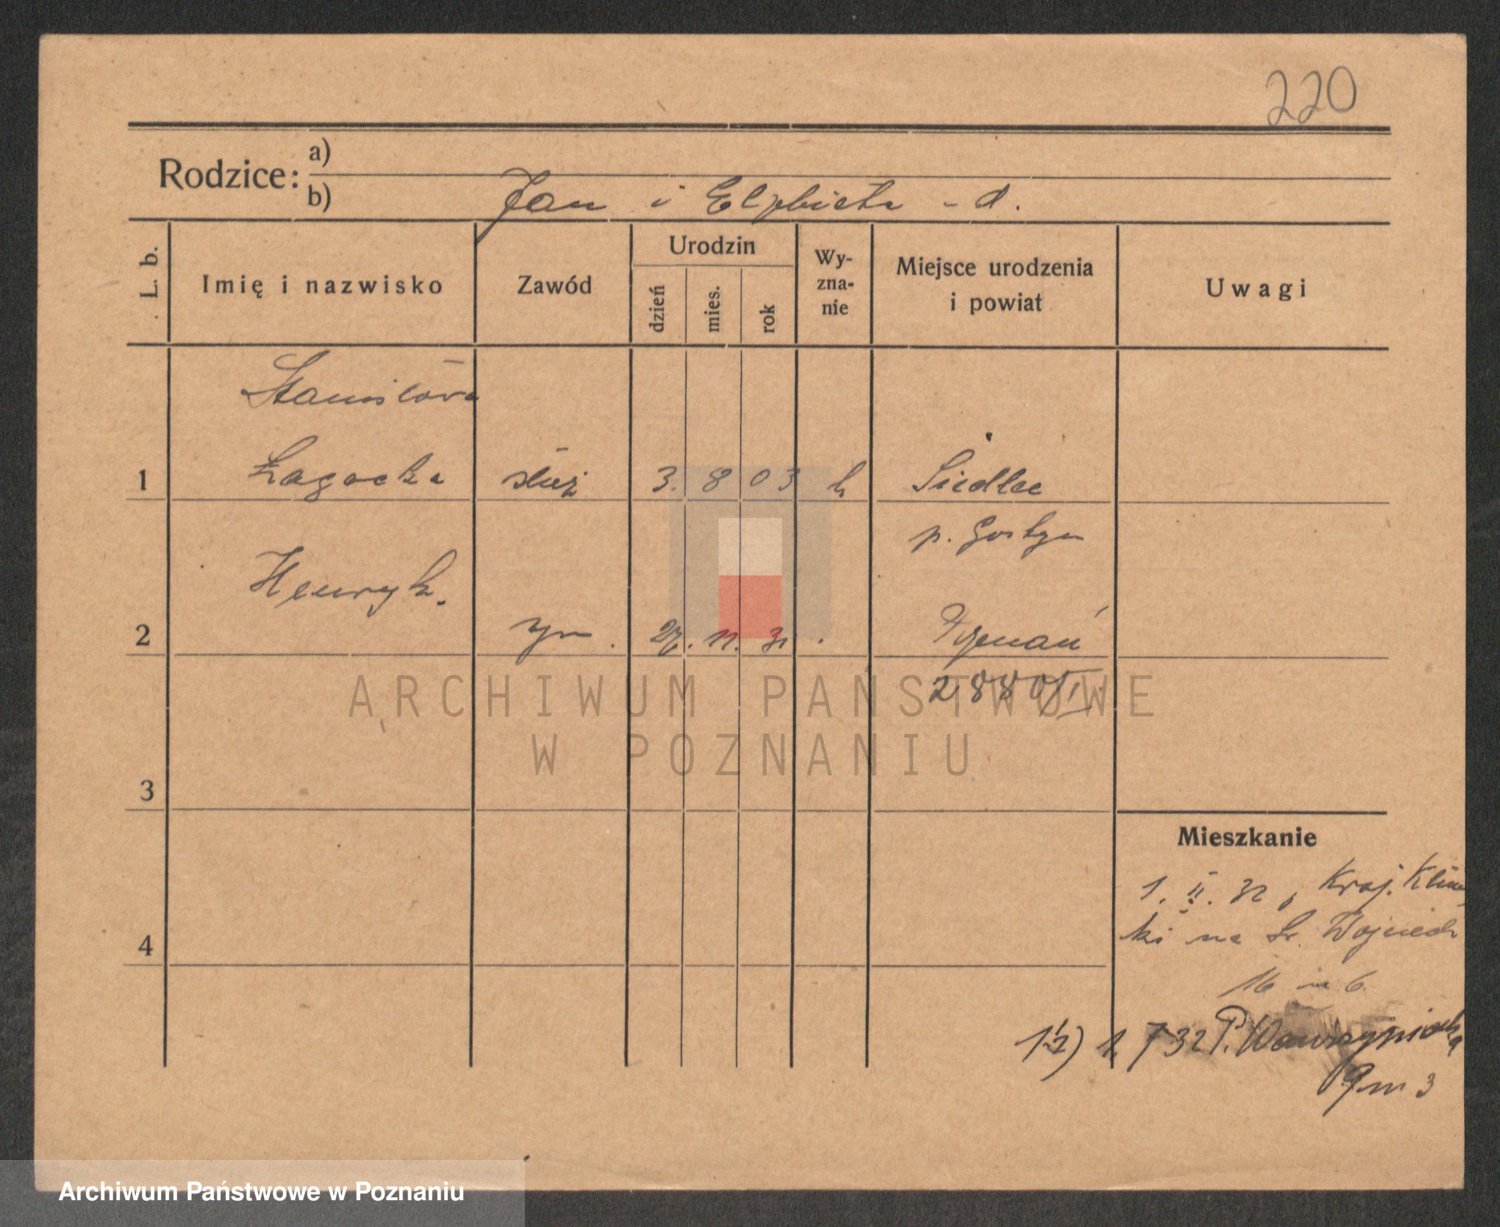 220
Rodzice:
a)
b) Jan i Elżbieta - d.
L. b.
Imię i nazwisko
Zawód
Urodzin
dzień
mies.
rok
Wy-
zna-
nie
Miejsce urodzenia
i powiat
Uwagi
Stanisława
1 Łagocka służ 3. 8 03 k Siedlec
p. Gostyn
Henryk.
2 syn. 27. 11. 31. Poznań
2880/
3
4
Mieszkanie
1. II. 32, Kraj.
na Św. Wojciech
16 m 6
1 i 2) 1 7 32 P. Wawrzyniaka
9 m 3
ARCHIWUM PAŃSTWOWE
W POZNANIU
Archiwum Państwowe w Poznaniu